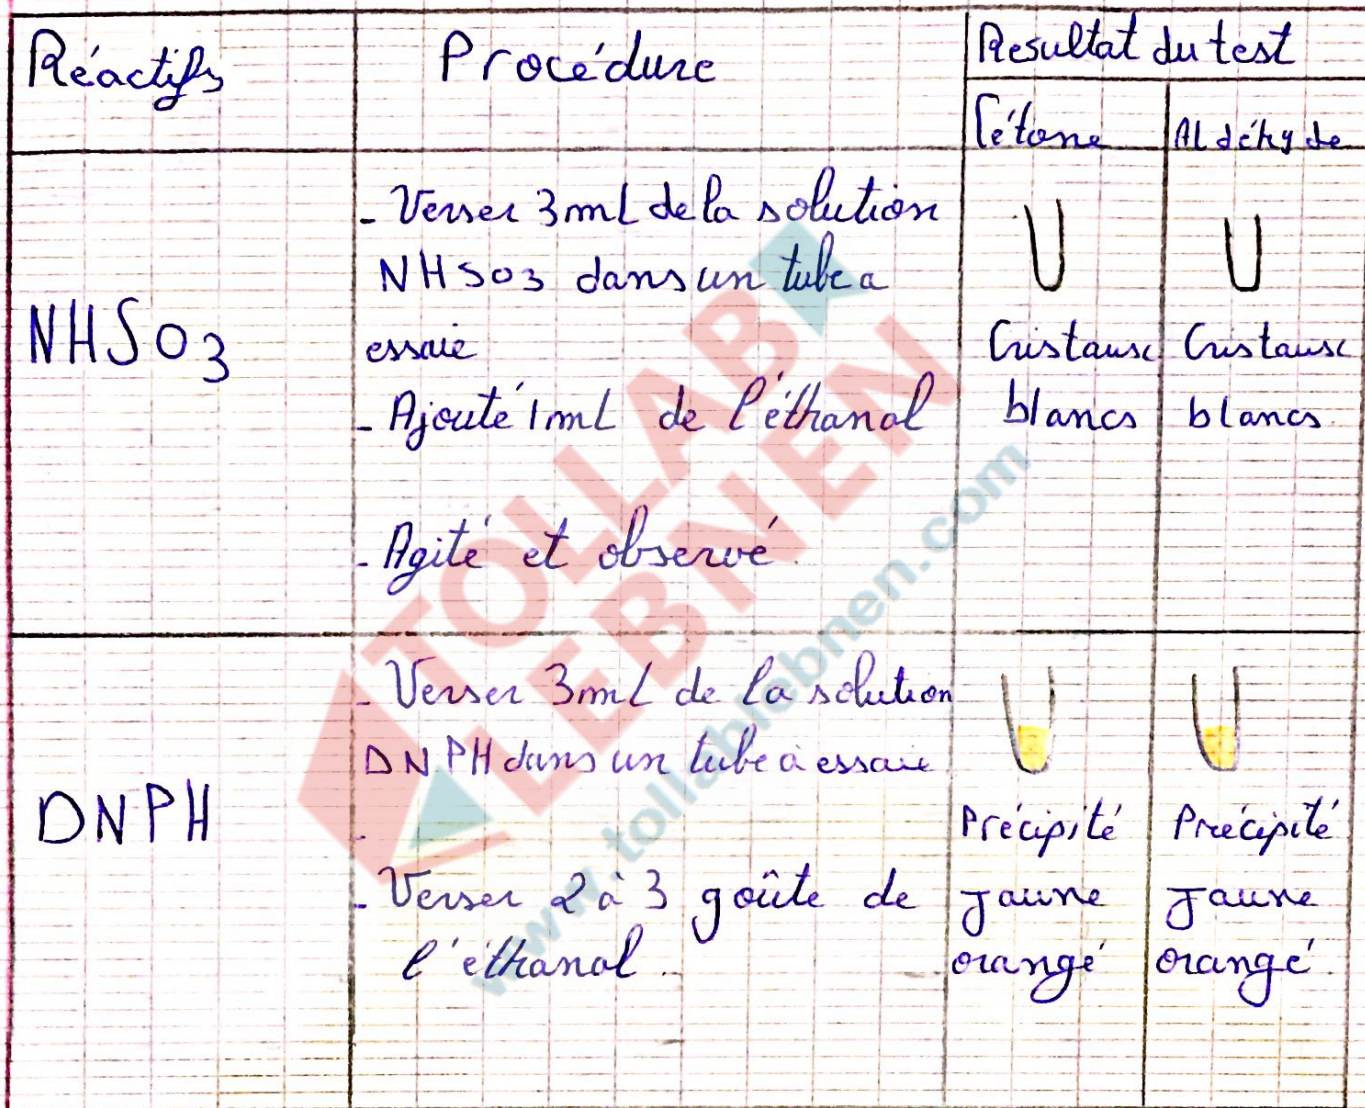 Réactifs
Procédure
Resultat du test
Cétone
Aldéhyde
NHSO3
- Verser 3mL de la solution
NHSO3 dans un tube a
essaie
- Ajouté 1mL de l'éthanal
- Agité et observé.
Cristaux
blancs
Cristaux
blancs.
DNPH
- Verser 3mL de la solution
DNPH dans un tube à essaie
-
- Verser 2 à 3 goûte de
l'éthanal.
Précipité
Jaune
orangé
Précipité
Jaune
orangé.
TOLLAB
LEBNEN
www.tollablebnen.com